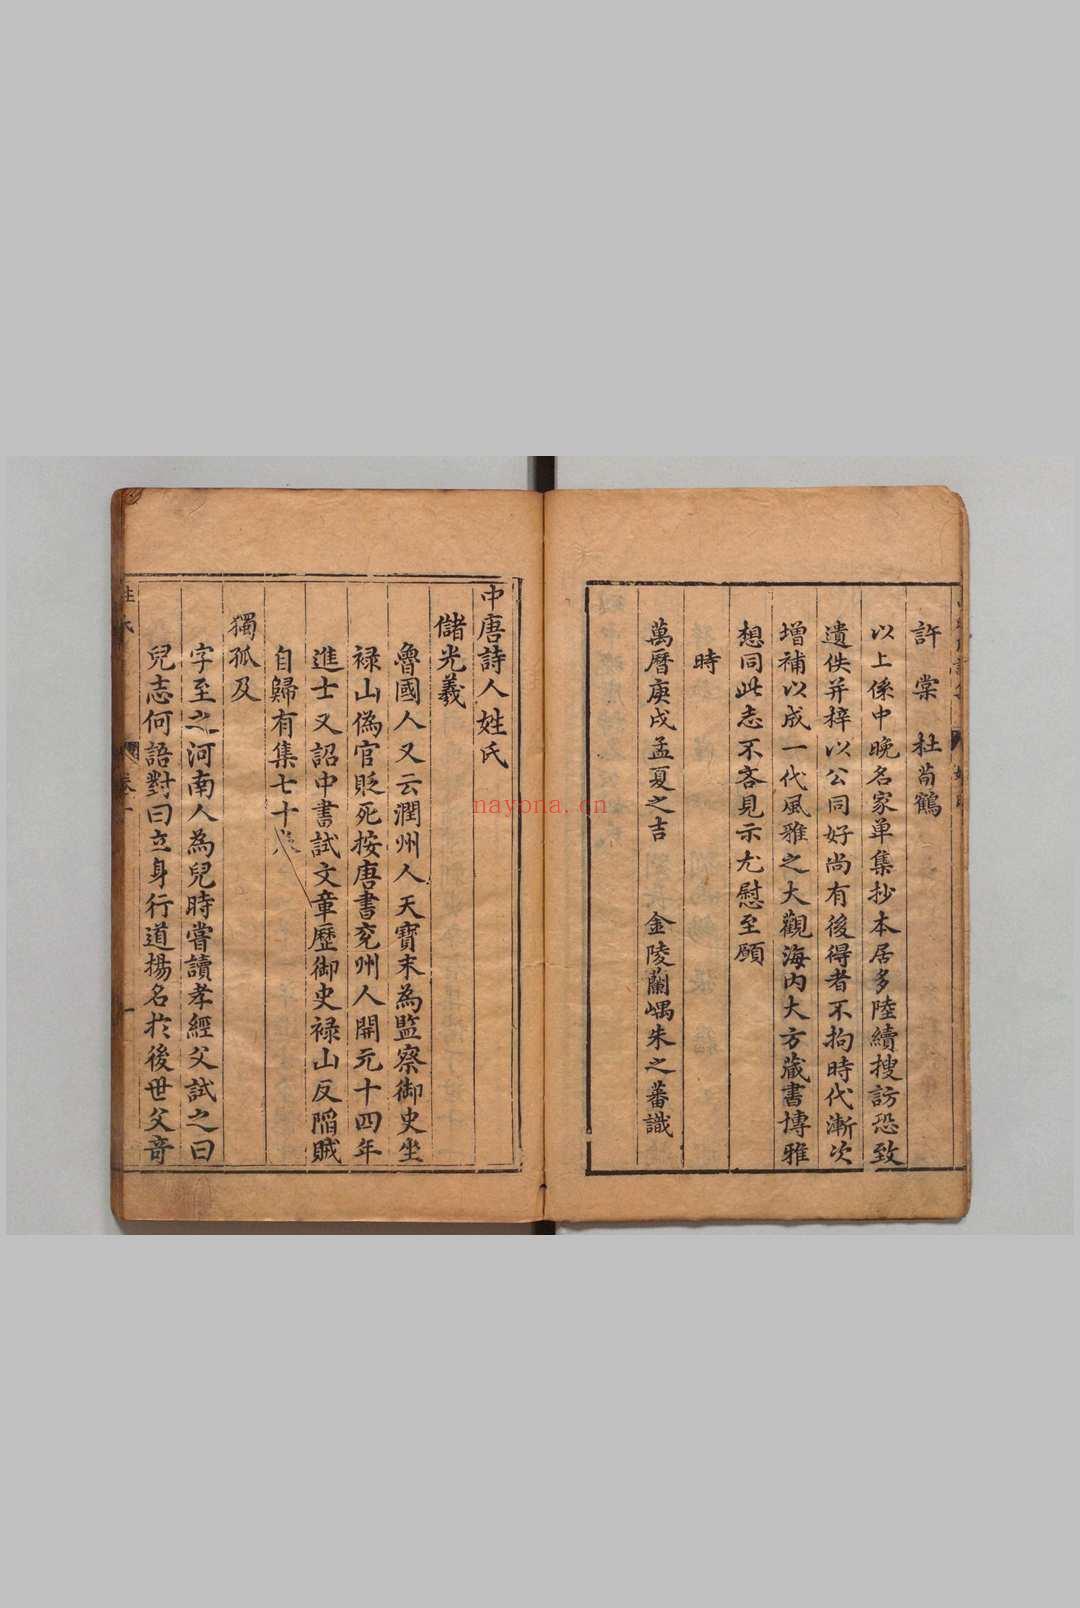 許棠 杜荀鶴
以上係中晚名家單集抄本居多陸續搜訪恐致
遺佚并梓以公同好尚有後得者不拘時代漸次
增補以成一代風雅之大觀海内大方藏書博雅
想同此志不吝見示尤慰至願
時
萬曆庚戌孟夏之吉 金陵蘭嵎朱之蕃識
中唐詩人姓氏
儲光羲
魯國人又云潤州人天寶末為監察御史坐
禄山偽官貶死按唐書兖州人開元十四年
進士又詔中書試文章歷御史禄山反陷賊
自歸有集七十卷
獨孤及
字至之河南人為兒時嘗讀孝經父試之曰
兒志何語對曰立身行道揚名於後世父竒
姓氏 卷 一
nayona.cn